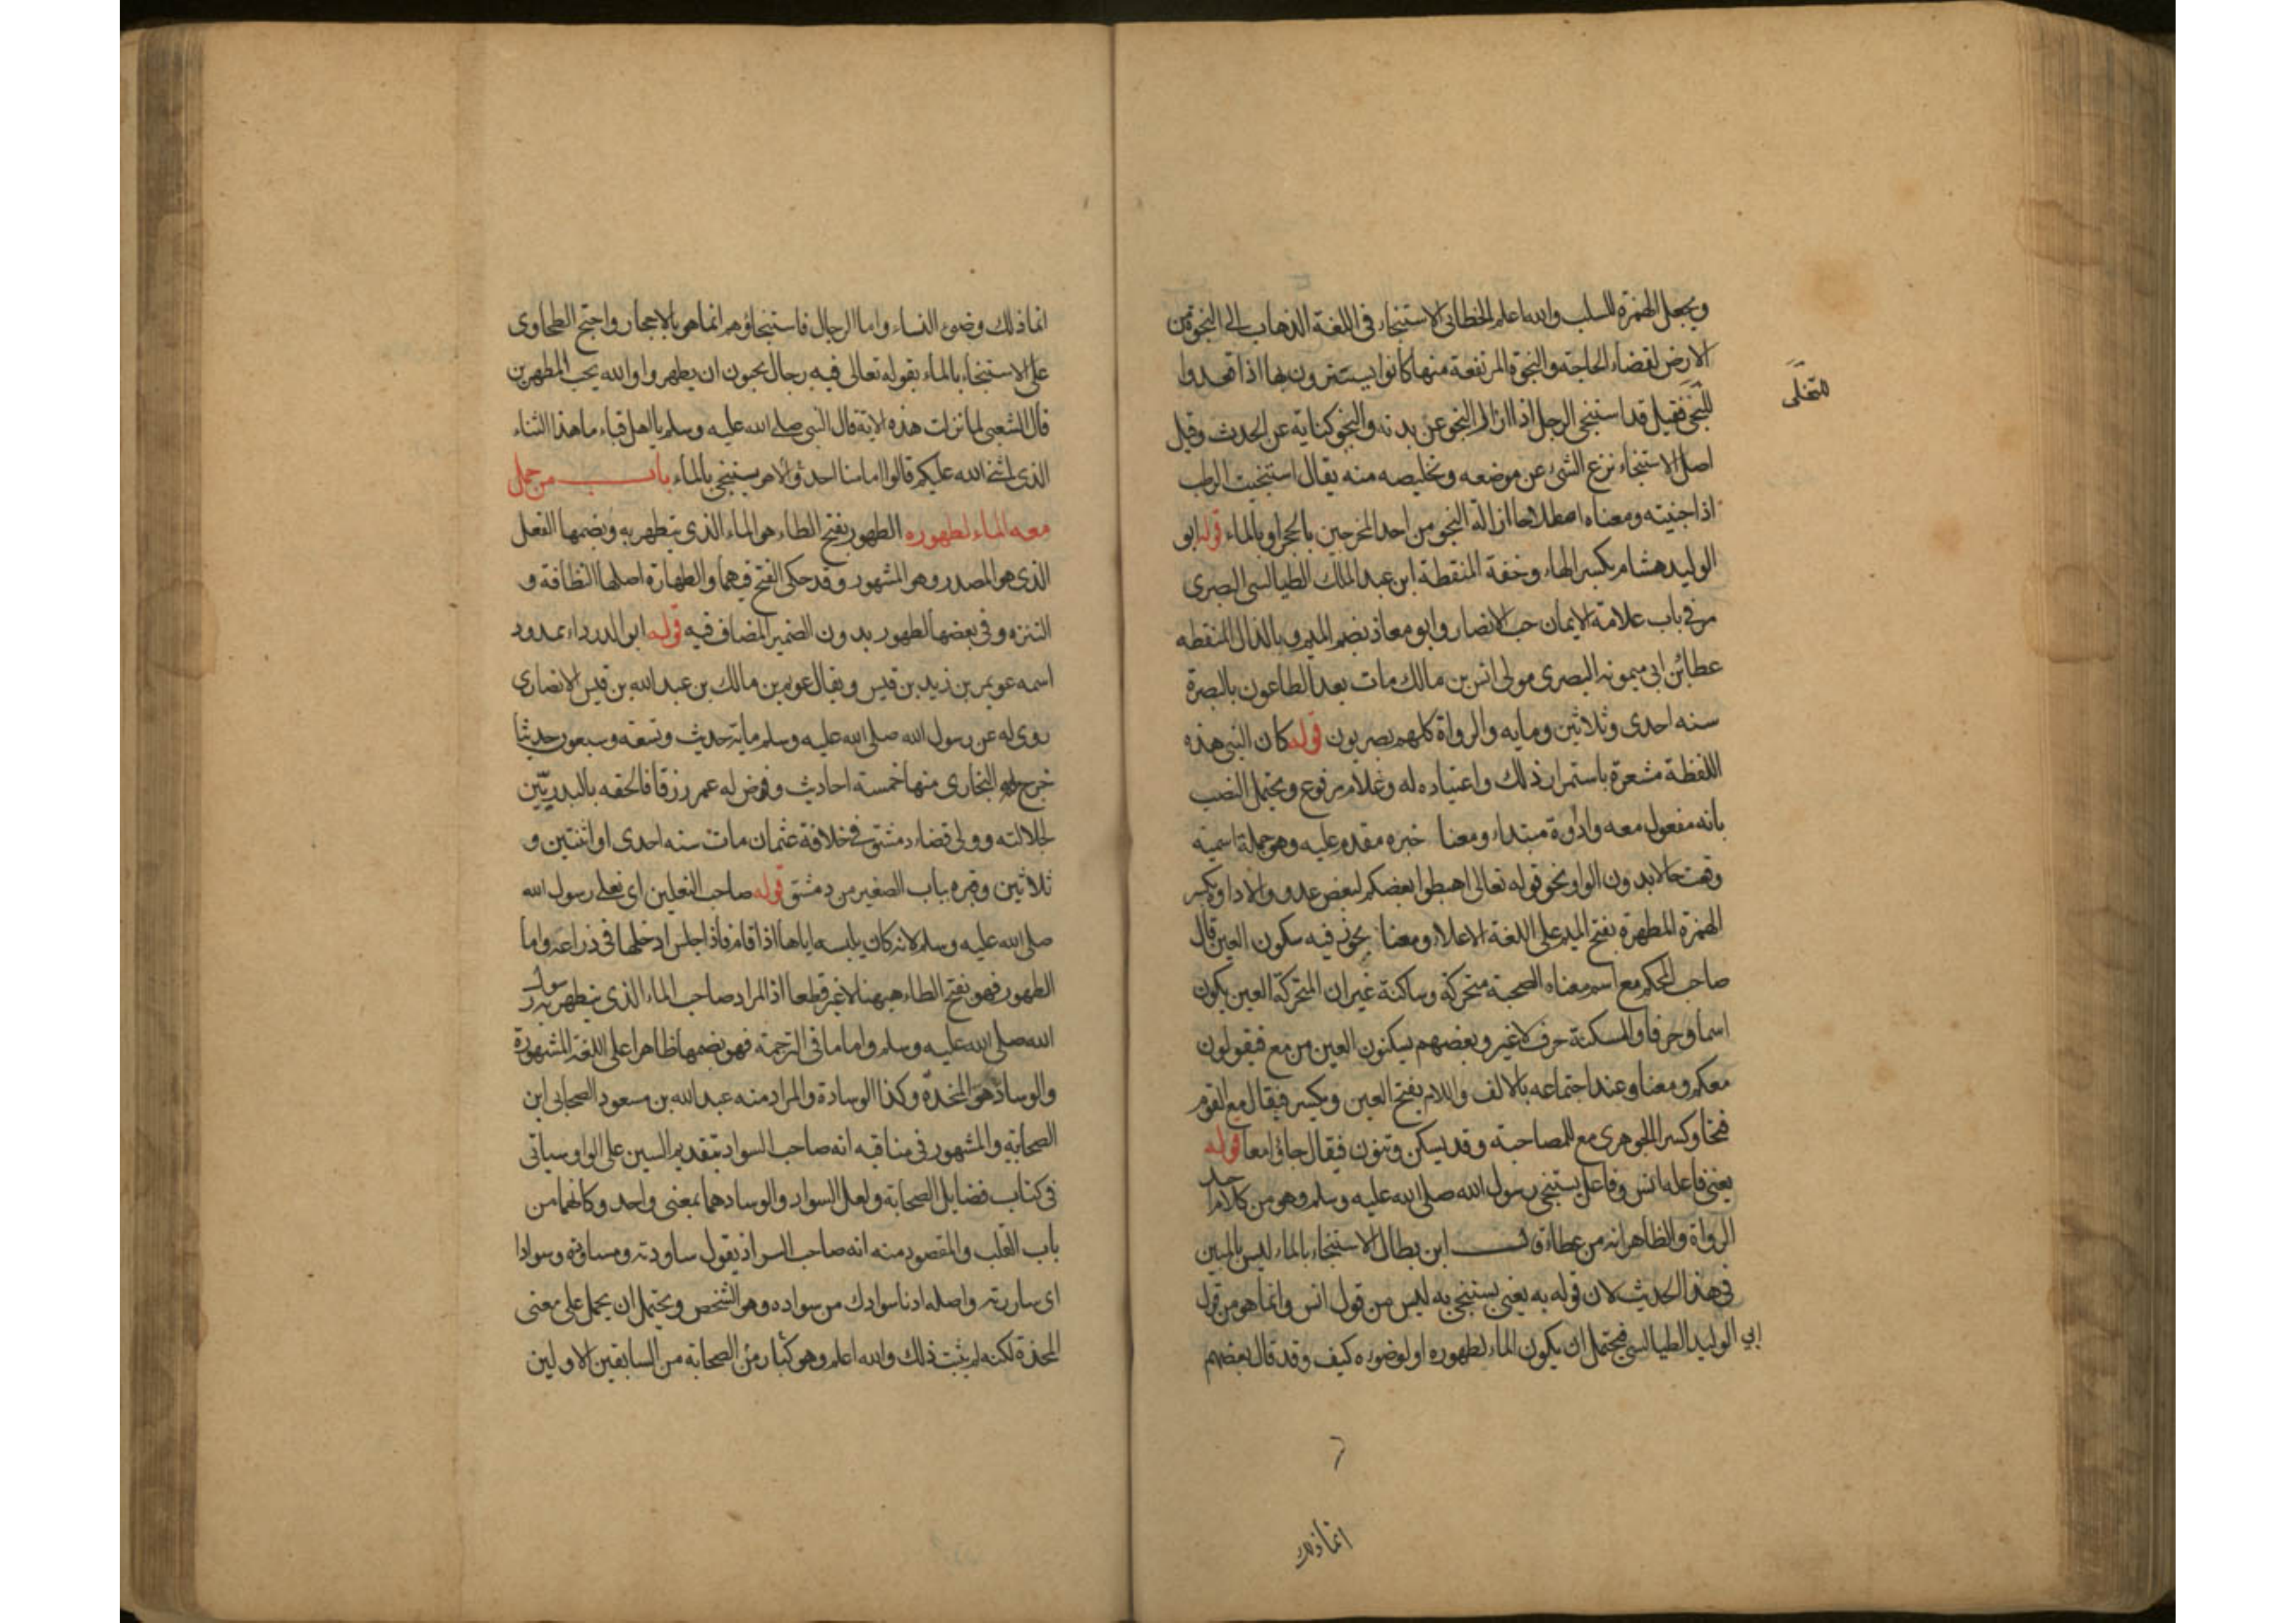 ويجعل الهمزة للسلب والله اعلم الخطابي الاستنجاء في اللغة الذهاب الى النجوة من
الارض لقضاء الحاجة والنجوة المرتفعة منها كانوا يستترون بها اذا قعدوا
للتخلى
فقيل قد استنجى الرجل اذا ازال النجو عن بدنه والنجو كناية عن الحدث وقيل
اصل الاستنجاء نزع الشئ عن موضعه وتخليصه منه يقال استنجيت الرطب
اذا جنيته ومعناه اصطلاحا ازالة النجو من احد المخرجين بالحجر او بالماء قوله ابو
الوليد هشام بكسر الهاء وخفة المنقطة ابن عبد الملك الطيالسى البصرى
مر في باب علامة الايمان حب الانصار وابو معاذ بضم الميم وبالذال المنقطه
عطا بن ابي ميمونه البصرى مولى انس بن مالك مات بعد الطاعون بالبصرة
سنه احدى وثلاثين ومايه والرواة كلهم بصريون قوله كان النبى هذه
اللفظة مشعرة باستمرار ذلك واعتياده له وغلام مرفوع ويحتمل النصب
بانه مفعول معه واداوة مبتداء ومعنا خبره مقدم عليه وهو جملة اسمية
وقعت حالا بدون الواو نحو قوله تعالى اهبطوا بعضكم لبعض عدو والاداوة بكسر
الهمزة المطهرة بفتح الميم على اللغة الاعلا ومعنا يجوز فيه سكون العين قال
صاحب المحكم مع اسم معناه الصحبة متحركة وساكنة غير ان المتحركة العين يكون
اسما وحرفا والمسكنة حرف لاغير وبعضهم يسكنون العين من مع فيقولون
معكم ومعنا وعند اجتماعه بالالف واللام بفتح العين ويكسر فيقال مع القوم
فتحا وكسرا الجوهرى مع للمصاحبة وقد يسكن وتنون فيقال جاؤا معا قوله
يعنى فاعله انس وفاعل يستنجى رسول الله صلى الله عليه وسلم وهو من كلام احد
الرواة والظاهر انه من عطاء قال ابن بطال الاستنجاء بالماء ليس بالبين
في هذا الحديث لان قوله به يعنى يستنجى به ليس من قول انس وانما هو من قول
ابي الوليد الطيالسى فيحتمل ان يكون الماء لطهوره او لوضوءه كيف وقد قال بعضهم
انما ذلك
انما ذلك وضوء النساء واما الرجال فاستنجاؤهم انما هو بالاحجار واحتج الطحاوى
على الاستنجاء بالماء بقوله تعالى فيه رجال يحبون ان يطهروا والله يحب المطهرين
قال الشعبي لما نزلت هذه الاية قال النبى صلى الله عليه وسلم يا اهل قباء ما هذا الثناء
الذى اثنى الله عليكم قالوا ما منا احد الا وهو يستنجى بالماء باب من حمل
معه الماء لطهوره الطهور بفتح الطاء هو الماء الذى يتطهر به وبضمها الفعل
الذى هو المصدر وهو المشهور وقد حكى الفتح فيهما والطهارة اصلها النظافة و
التنزه وفي بعضها لطهور بدون الضمير المضاف فيه قوله ابو الدرداء بمدود
اسمه عويمر بن زيد بن قيس ويقال عويمر بن مالك بن عبد الله بن قيس الانصارى
روى له عن رسول الله صلى الله عليه وسلم مايه حديث وتسعه وسبعون حديثا
خرج له البخارى منها خمسة احاديث وفرض له عمر رزقا فالحقه بالبدريين
لجلالته وولى قضاء دمشق في خلافة عثمان مات سنه احدى او اثنتين و
ثلاثين وقبره بباب الصغير من دمشق قوله صاحب النعلين اى نعلى رسول الله
صلى الله عليه وسلم لانه كان يلبسه اياها اذا قام فاذا جلس ادخلها في ذراعه واما
الطهور فهو بفتح الطاء ههنا لاغير قطعا اذ المراد صاحب الماء الذى يتطهر به رسول
الله صلى الله عليه وسلم واما ما في الترجمة فهو بضمها ظاهرا على اللغة المشهورة
والوساد هو المخدة وكذا الوسادة والمراد منه عبد الله بن مسعود الصحابي ابن
الصحابة والمشهور في مناقبه انه صاحب السواد بتقديم السين على الواو وسياتى
في كتاب فضايل الصحابة ولعل السواد والوساد هما بمعنى واحد وكانهما من
باب القلب والمقصود منه انه صاحب السر اذ يقول ساودته مساودة وسوادا
اى ساررته واصله ادنا سوادك من سواده وهو الشخص ويحتمل ان يحمل على معنى
المخدة لكنه لم يثبت ذلك والله اعلم وهو من كبار الصحابة من السابقين الاولين